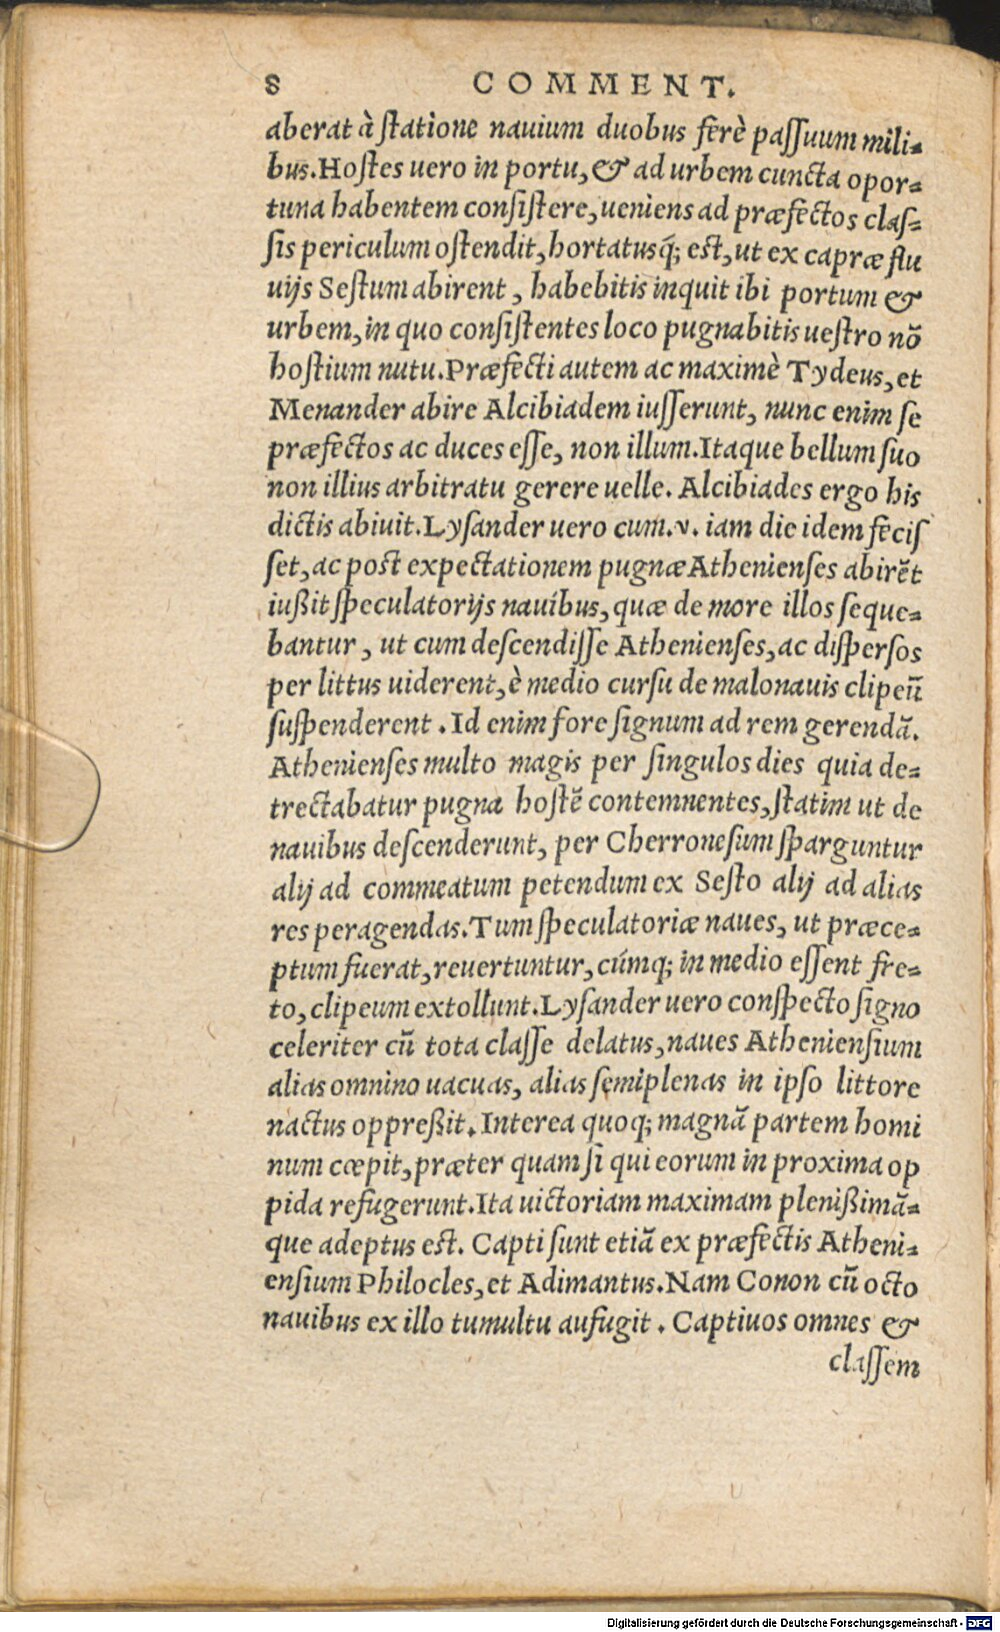 8 COMMENT.
aberat à statione nauium duobus ferè passuum mili-
bus. Hostes uero in portu, & ad urbem cuncta opor-
tuna habentem consistere, ueniens ad præfectos clas-
sis periculum ostendit, hortatusq́; est, ut ex capræ flu
uijs Sestum abirent, habebitis inquit ibi portum &
urbem, in quo consistentes loco pugnabitis uestro nō
hostium nutu. Præfecti autem ac maximè Tydeus, et
Menander abire Alcibiadem iusserunt, nunc enim se
præfectos ac duces esse, non illum. Itaque bellum suo
non illius arbitratu gerere uelle. Alcibiades ergo his
dictis abiuit. Lysander uero cum .v. iam die idem fecis
set, ac post expectationem pugnæ Athenienses abirēt
iußit speculatorijs nauibus, quæ de more illos seque-
bantur, ut cum descendisse Athenienses, ac dispersos
per littus uiderent, è medio cursu de malo nauis clipeū
suspenderent. Id enim fore signum ad rem gerendā.
Athenienses multo magis per singulos dies quia de-
trectabatur pugna hostē contemnentes, statim ut de
nauibus descenderunt, per Cherronesum sparguntur
alij ad commeatum petendum ex Sesto alij ad alias
res peragendas. Tum speculatoriæ naues, ut præce-
ptum fuerat, reuertuntur, cúmq; in medio essent fre-
to, clipeum extollunt. Lysander uero conspecto signo
celeriter cū tota classe delatus, naues Atheniensium
alias omnino uacuas, alias semiplenas in ipso littore
nactus oppreßit. Interea quoq; magnā partem homi
num cœpit, præter quam si qui eorum in proxima op
pida refugerunt. Ita uictoriam maximam plenißimā-
que adeptus est. Capti sunt etiā ex præfectis Atheni-
ensium Philocles, et Adimantus. Nam Conon cū octo
nauibus ex illo tumultu aufugit. Captiuos omnes &
classem
Digitalisierung gefördert durch die Deutsche Forschungsgemeinschaft - DFG